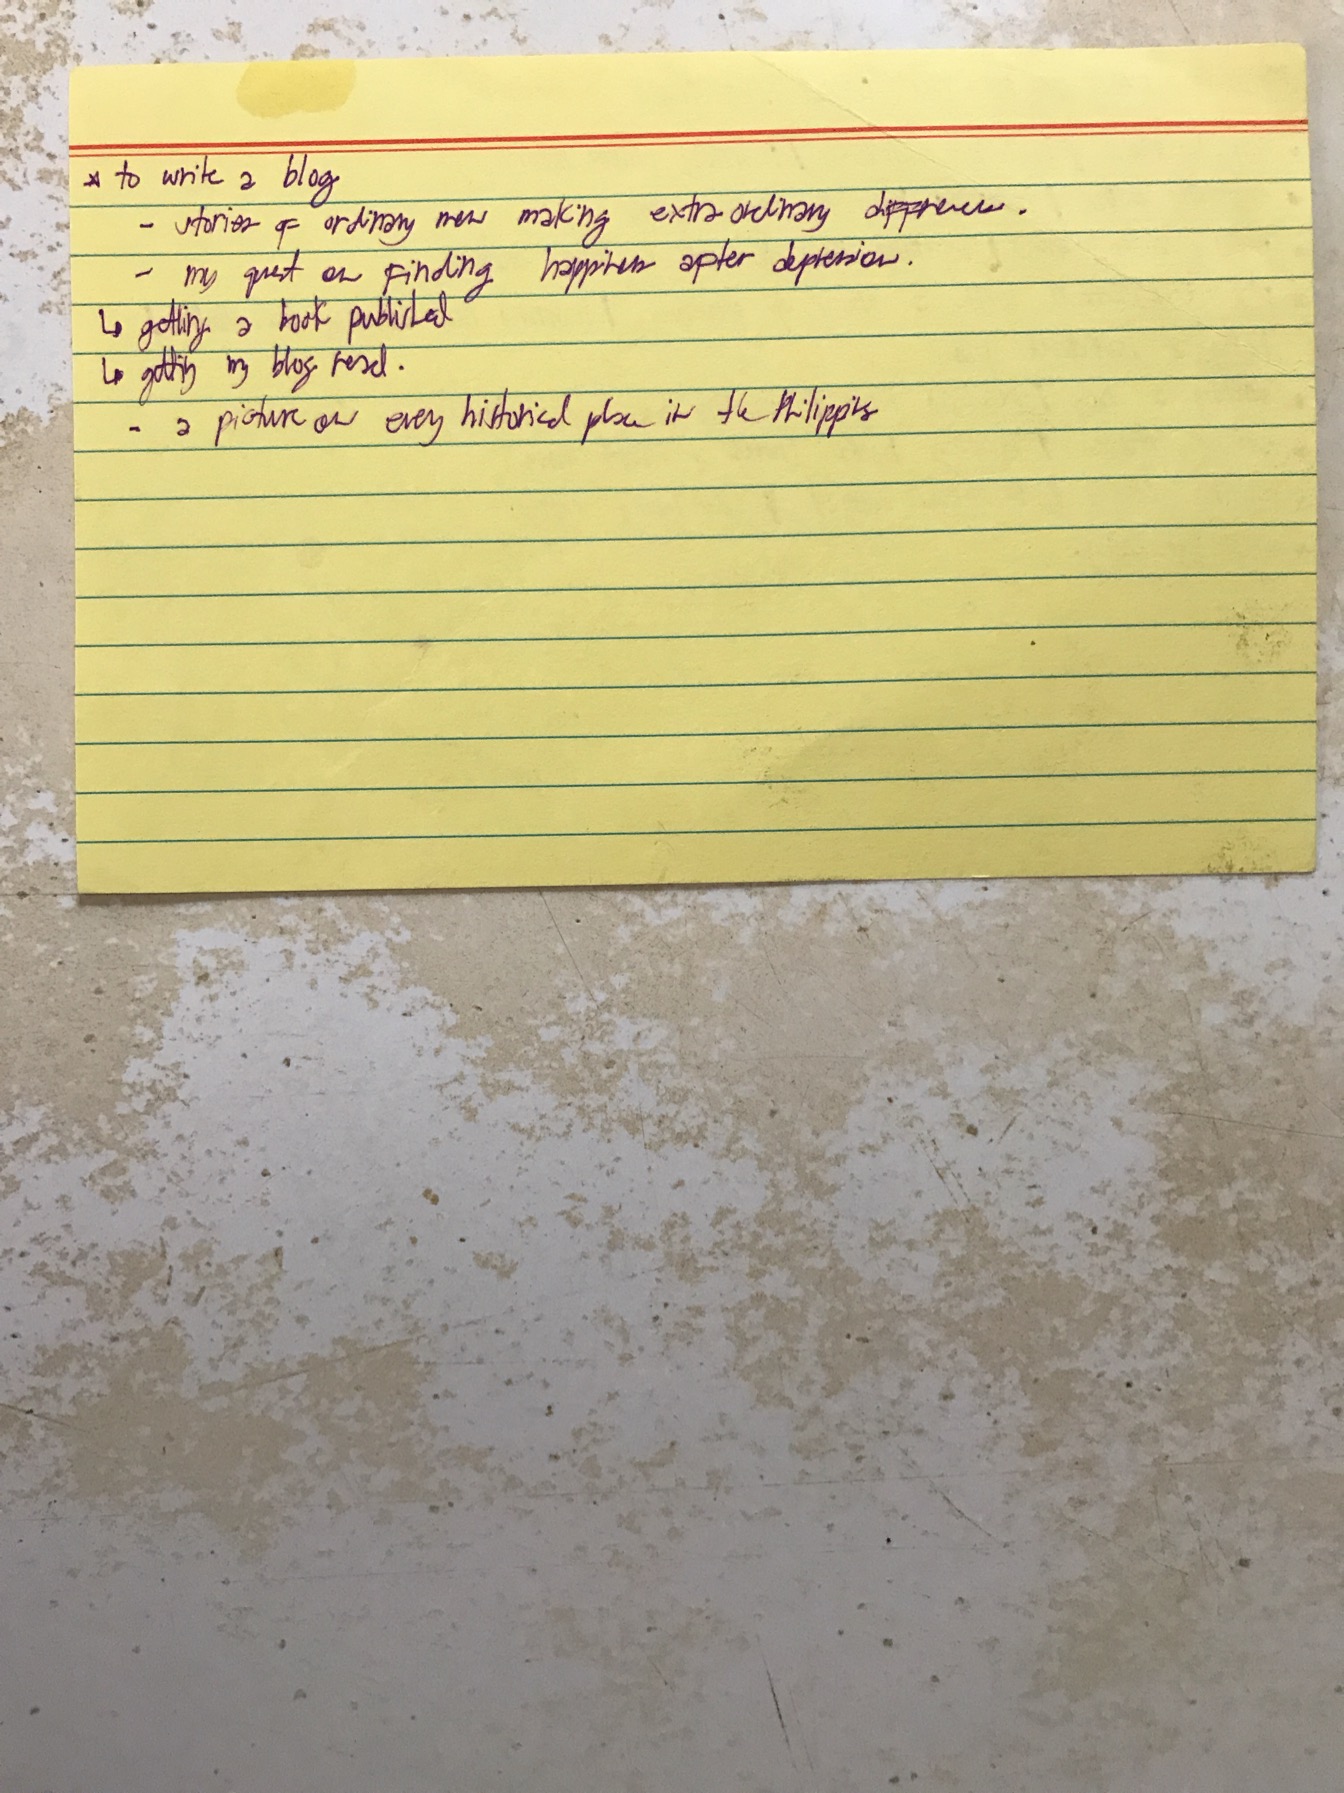 * to write a blog
- stories of ordinary men making extra ordinary difference.
- my quest on finding happiness after depression.
↳ getting a book published
↳ getting my blog read.
- a picture on every historical place in the Philippines